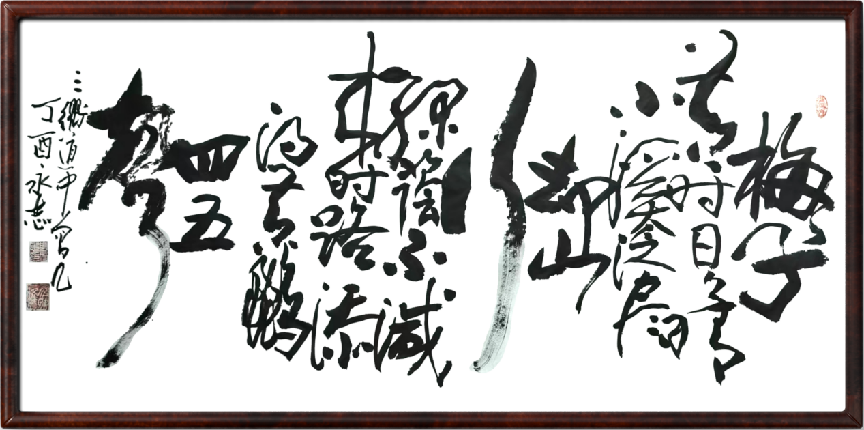 梅子
黄时日日晴
小溪泛尽
却山
行
绿荫不减
来时路添
得黄鹂
四五
声
三衢道中 曾几
丁酉 永志